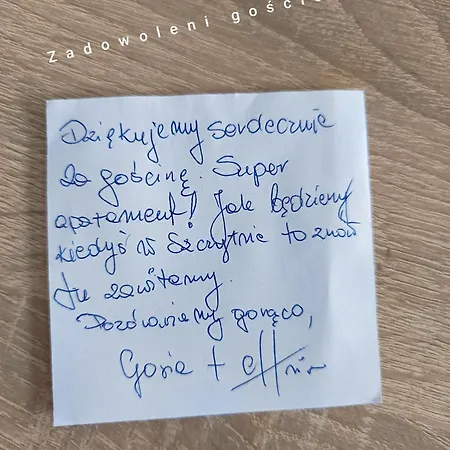 Zadowoleni gości
Dziękujemy serdecznie
za gościnę. Super
apatament! Jak będziemy
kiedyś w Szczytnie to znów
tu zawitamy.
Pozdrawiamy gorąco,
Gosia +